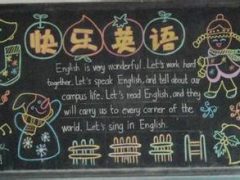 快乐英语
English is very wonderful. Let's work hard
together. Let's speak English, and tell about our
campus life. Let's read English, and they
will carry us to every corner of the
world. Let's sing in English.